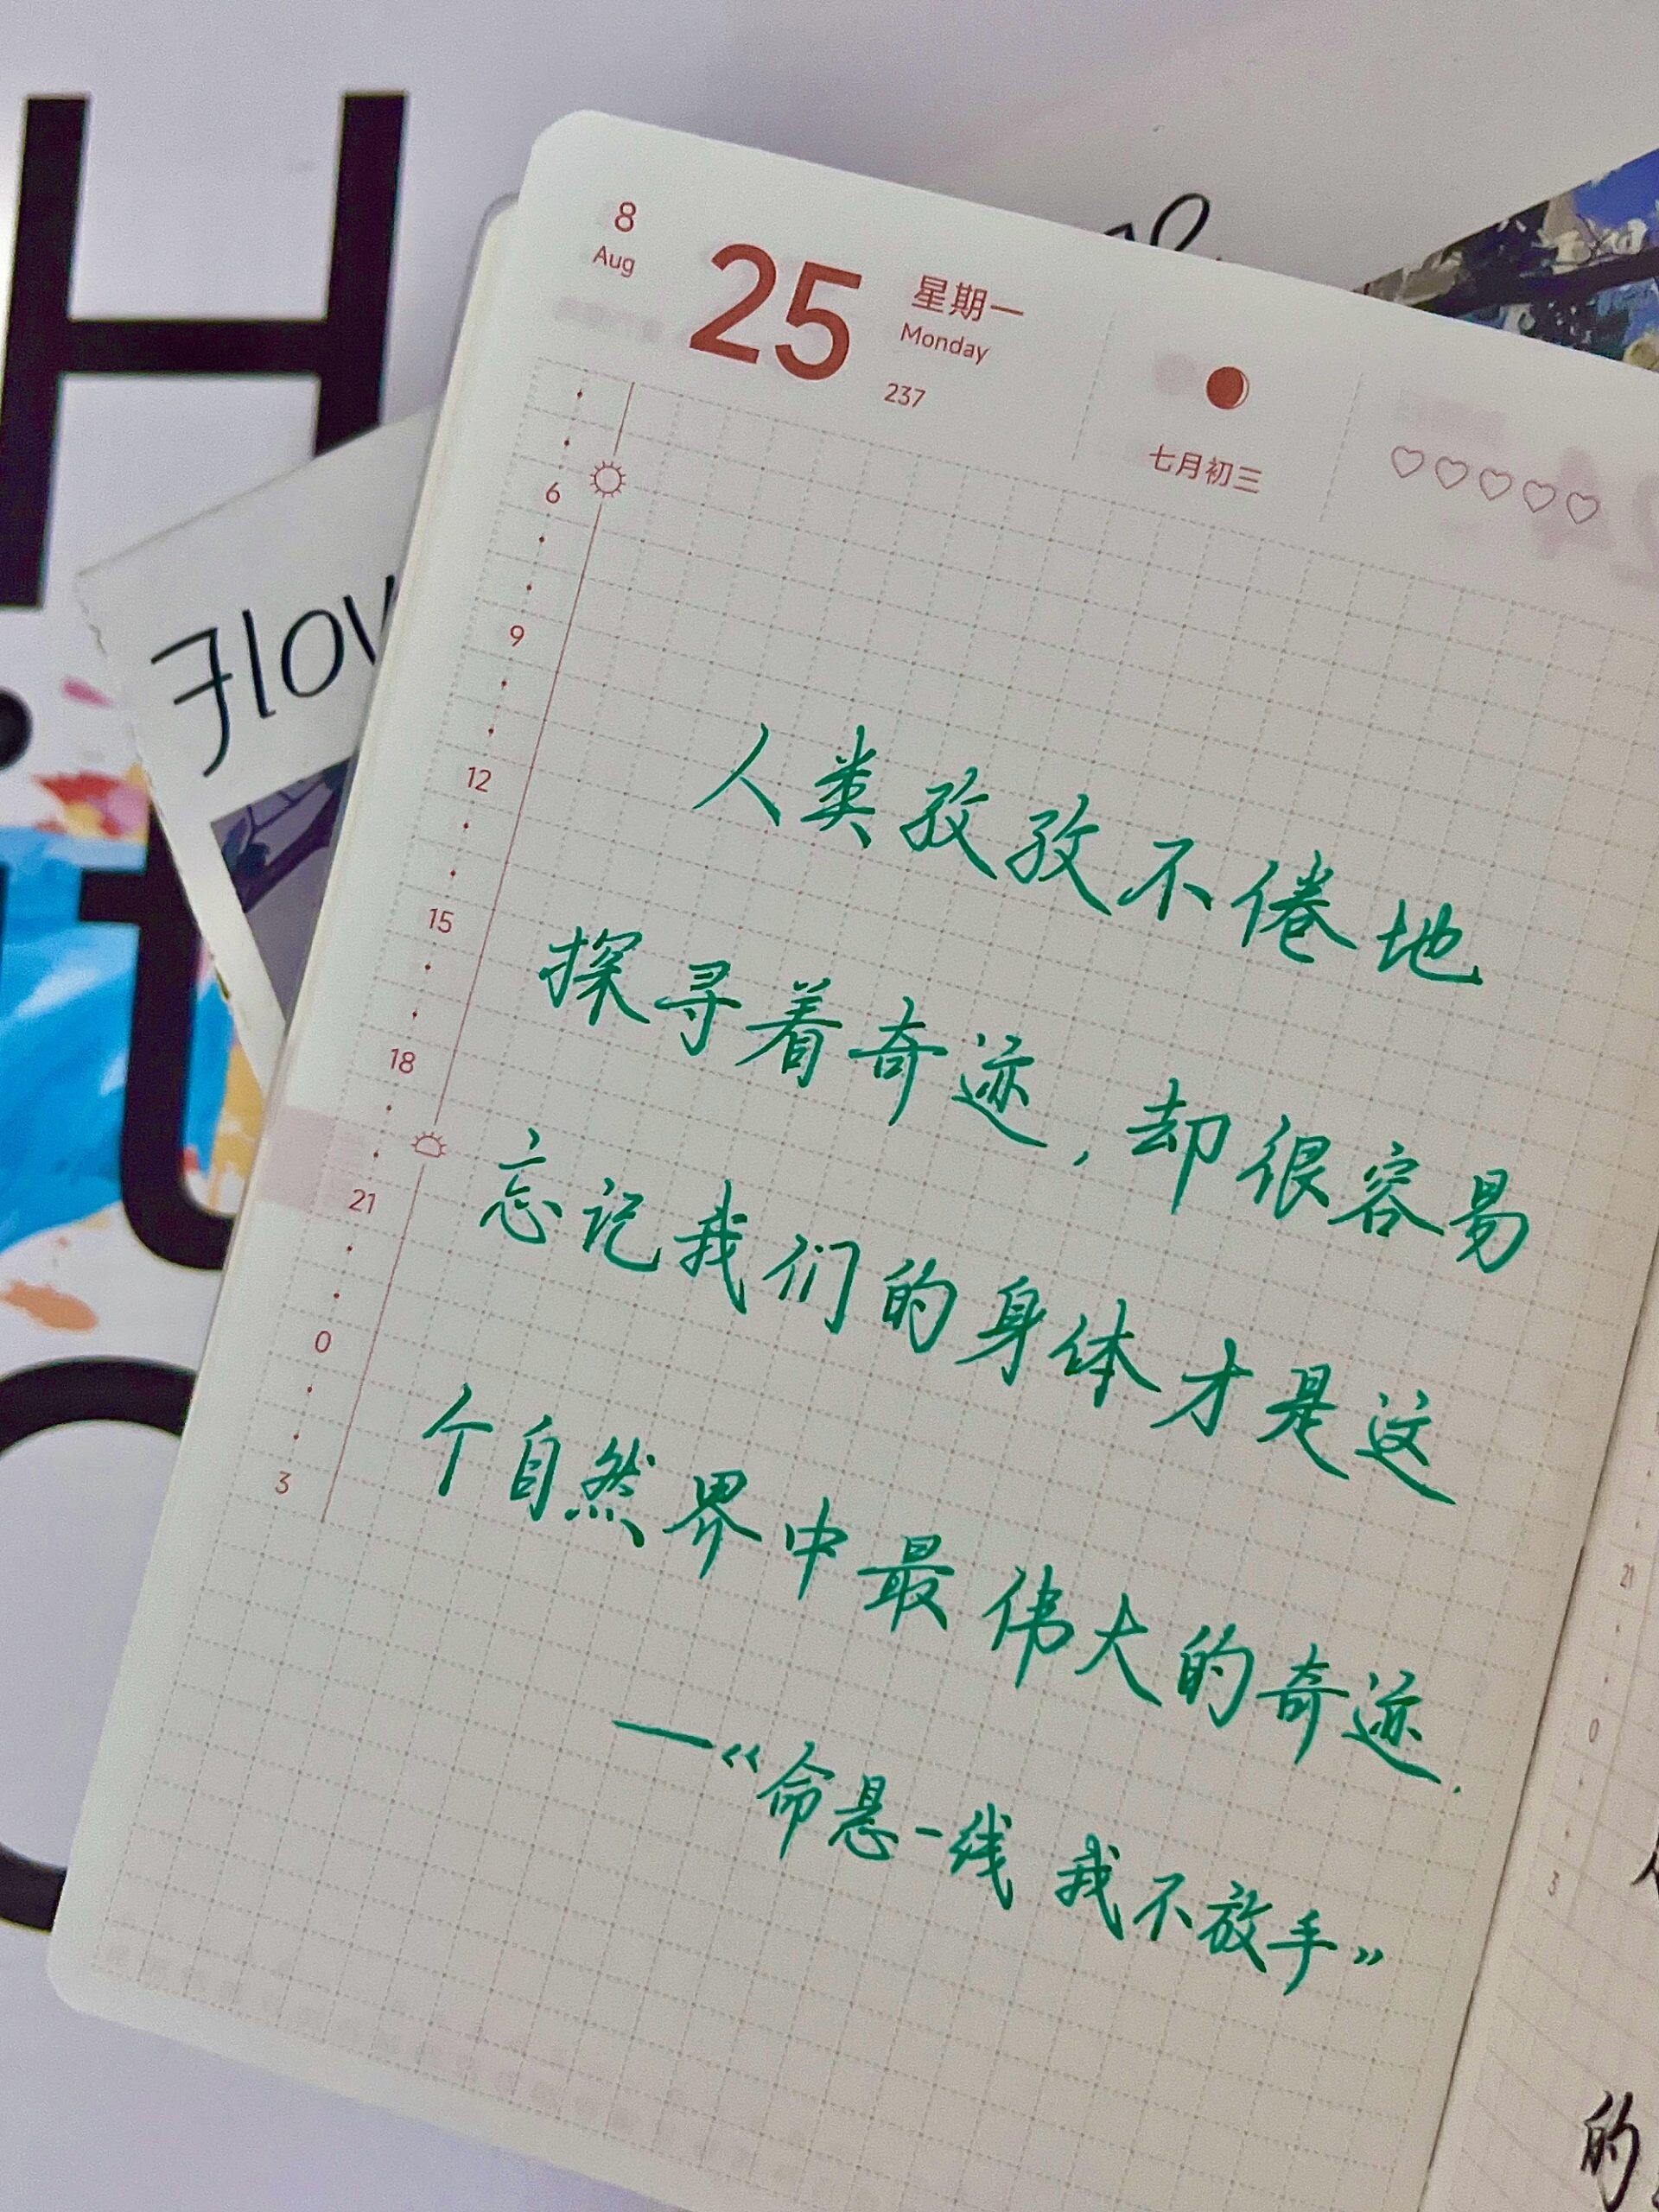 H
Flow
8
Aug
25
星期一
Monday
237
七月初三
6
9
12
15
18
21
0
3
人类孜孜不倦地
探寻着奇迹,却很容易
忘记我们的身体才是这
个自然界中最伟大的奇迹.
—《命悬一线 我不放手》
21
0
3
的